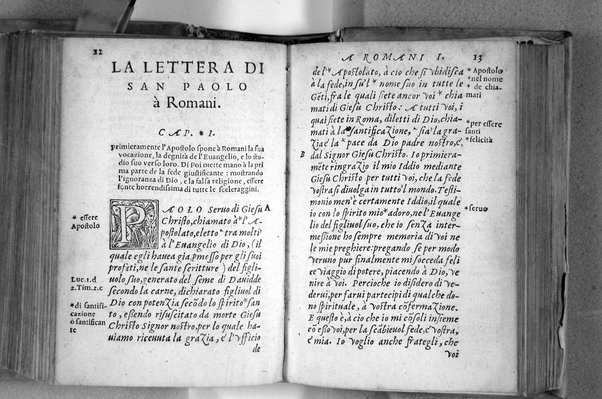 12
LA LETTERA DI
SAN PAOLO
à Romani.
CAP. I.
primieramente l'Apostolo spone à Romani la sua
vocazione, la degnità de l'Euangelio, e lo stu-
dio suo verso loro. Di poi mette mano à la pri
ma parte de la fede giustificante: mostrando
l'ignoranza di Dio, e la falsa religione, essere
fonte horrendissima di tutte le sceleraggini.
* essere
Apostolo
PAOLO Seruo di Giesu A
Christo, chiamato à l'A-
postolato, eletto * tra molti
à l'Euangelio di Dio, (il
quale egli haueua gia, promesso per gli suoi
profeti, ne le sante scritture) del figli-
Luc.1.d
uolo suo, generato del seme di Dauidde
2.Tim.2.c
secondo la carne, dichiarato figliuol di
* di santifi-
Dio con potenzia secōdo lo spirito * san
cazione
to, essendo risuscitato da morte Giesu
ò santifican
Christo Signor nostro, per lo quale ha-
te
uiamo riceuuta la grazia, e l'vfficio
de
A ROMANI I.
13
del * Apostolato, à ciò che si vbidisca
* Apostolo
à la fede, in su'l * nome suo in tutte le
nel nome
Gēti, fra le quali siete ancor voi * chia
de chia-
mati di Giesu Christo: A tutti voi, i
mati
quai siete in Roma, diletti di Dio, chia-
mati à la * santificazione, * sia la gra-
* per essere
santi
zia e la * pace da Dio padre nostro, e
felicità
B
dal Signor Giesu Christo. Io primiera-
mēte ringrazio il mio Iddio mediante
Giesu Christo per tutti voi, che la fede
vostra si diuolga in tutto'l mondo. Testi-
monio men'è certamente Iddio, il qua-
le io con lo spirito mio * adoro, nel'Euange
* seruo
lio del figliuol suo, che io senza inter-
messione ho sempre memoria di voi ne
le mie preghiere: pregando se per modo
veruno pur finalmente mi succeda feli
ce viaggio di potere, piacendo à Dio, ve
nire à voi. Percioche io disidero di ve-
derui, per farui partecipi di qualche do-
no spirituale, à vostra cōfermazione.
E questo è, à ciò che io mi cōsoli insieme
cō esso voi, per la scābieuol fede, e vostra,
e mia. Io voglio anche frategli, che
voi